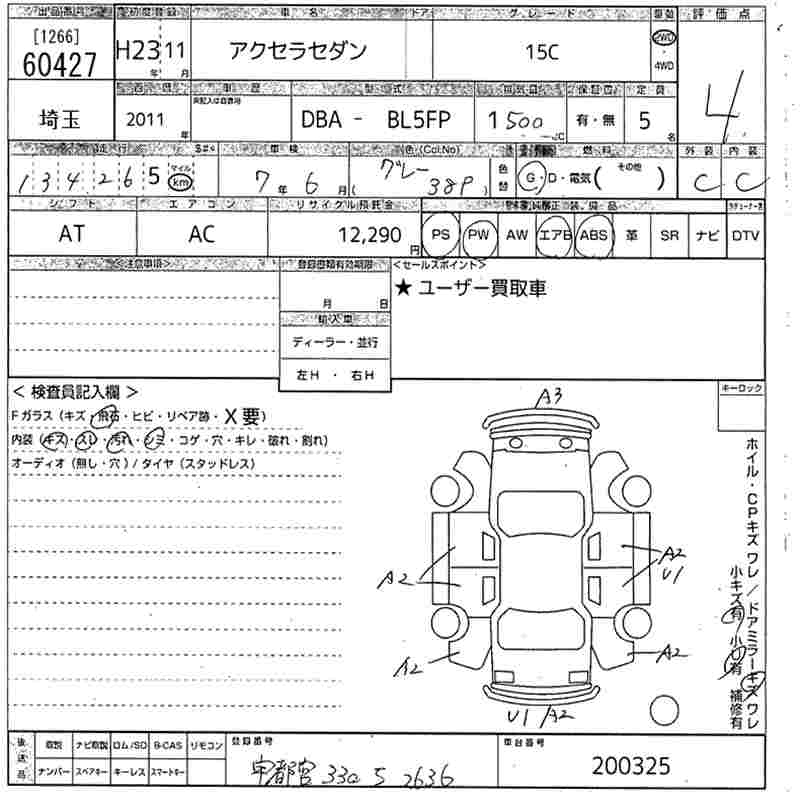 出品番号 初度登録 車名 ドア グレード 駆動 評価点
[1266]
60427 H23年 11月 アクセラセダン 15C 2WD・4WD 4
年式 車歴 型式 排気量 保証書 定員
未記入は自家用
埼玉 2011年 DBA - BL5FP 1500cc 有・無 5名
走行 車検 色(Col.No) 燃料 外装 内装
134265 マイル km 7年 6月 グレー (38P) 色替 G・D・電気(その他) C C
シフト エアコン リサイクル預託金 装備品
AT AC 12,290円 PS PW AW エアB ABS 革 SR ナビ DTV
<注意事項> 登録書類有効期限 <セールスポイント>
月 日 ★ ユーザー買取車
輸入車
ディーラー・並行
左H ・ 右H
< 検査員記入欄 > キーロック
Fガラス (キズ・飛石・ヒビ・リペア跡・X要)
内装 (キズ・スレ・汚れ・シミ・コゲ・穴・キレ・破れ・割れ)
オーディオ (無し・穴) / タイヤ (スタッドレス)
A3
A2
A2
U1
A2
A2
U1/A2
ホイル・CPキズワレ/ドアミラーキズワレ
小キズ有 小U有 補修有
後送品 取説 ナビ取説 ロム/SD B-CAS リモコン 登録番号 車台番号
ナンバー スペアキー キーレス スマートキー 宇都宮 330 す 2636 200325